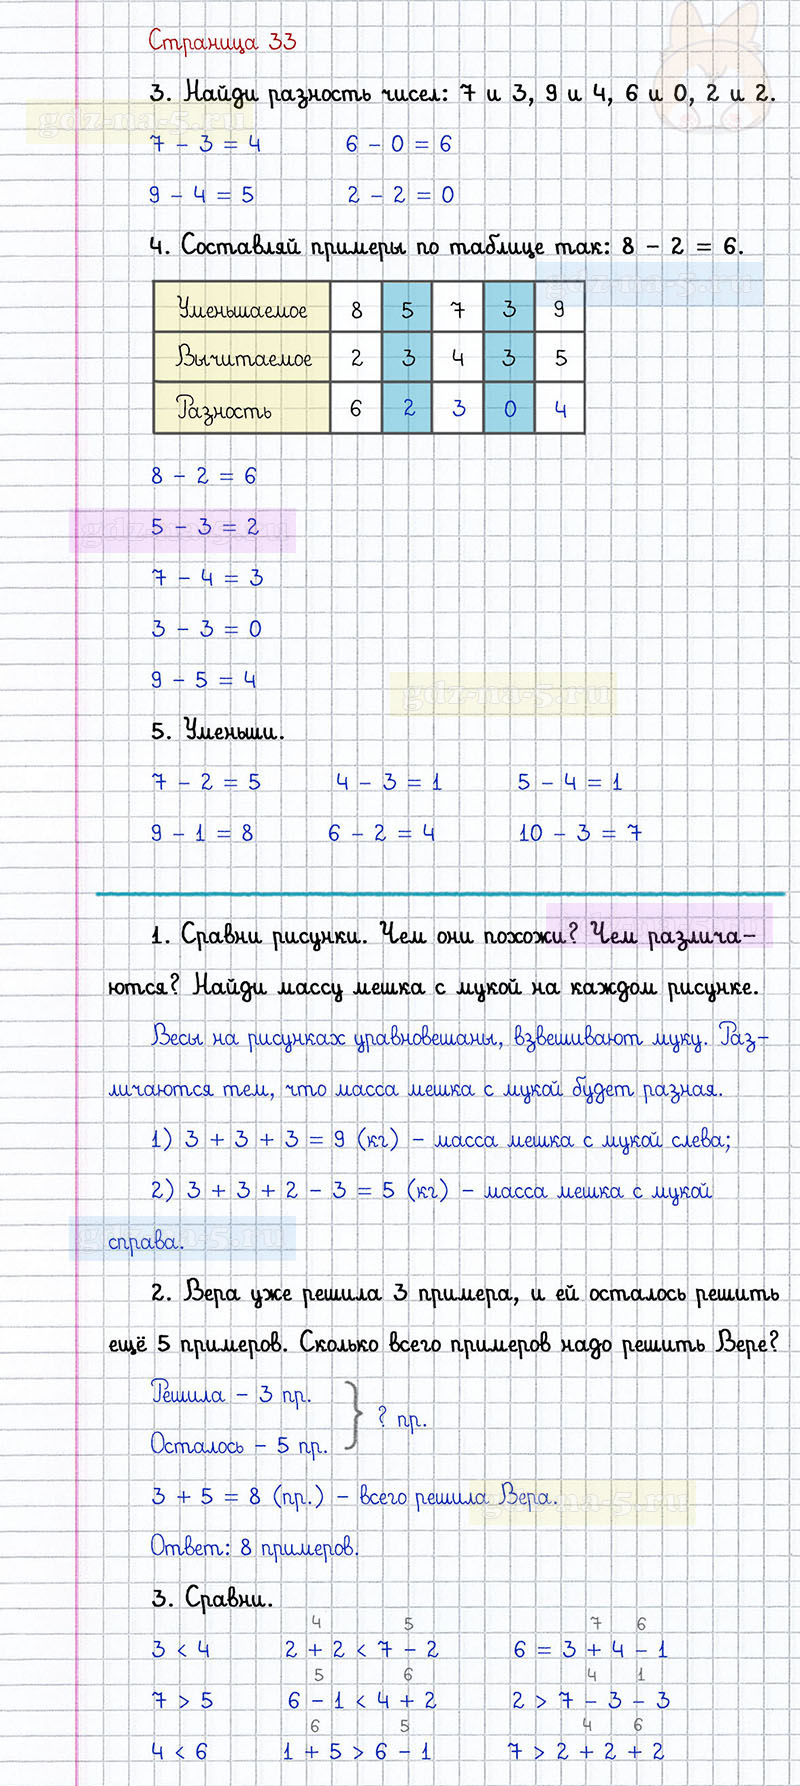 Страница 33
3. Найди разность чисел: 7 и 3, 9 и 4, 6 и 0, 2 и 2.
gdz-na-5.ru
7 - 3 = 4 6 - 0 = 6
9 - 4 = 5 2 - 2 = 0
4. Составляй примеры по таблице так: 8 - 2 = 6.
gdz-na-5.ru
Уменьшаемое 8 5 7 3 9
Вычитаемое 2 3 4 3 5
Разность 6 2 3 0 4
8 - 2 = 6
5 - 3 = 2
gdz-na-5.ru
7 - 4 = 3
3 - 3 = 0
9 - 5 = 4
gdz-na-5.ru
5. Уменьши.
7 - 2 = 5 4 - 3 = 1 5 - 4 = 1
9 - 1 = 8 6 - 2 = 4 10 - 3 = 7
gdz-na-5.ru
1. Сравни рисунки. Чем они похожи? Чем различа-
ются? Найди массу мешка с мукой на каждом рисунке.
Весы на рисунках уравновешаны, взвешивают муку. Раз-
личаются тем, что масса мешка с мукой будет разная.
1) 3 + 3 + 3 = 9 (кг) - масса мешка с мукой слева;
2) 3 + 3 + 2 - 3 = 5 (кг) - масса мешка с мукой
справа.
gdz-na-5.ru
2. Вера уже решила 3 примера, и ей осталось решить
ещё 5 примеров. Сколько всего примеров надо решить Вере?
Решила - 3 пр.
? пр.
Осталось - 5 пр.
3 + 5 = 8 (пр.) - всего решила Вера.
gdz-na-5.ru
Ответ: 8 примеров.
3. Сравни.
4 5 7 6
3 < 4 2 + 2 < 7 - 2 6 = 3 + 4 - 1
5 6 4 1
7 > 5 6 - 1 < 4 + 2 2 > 7 - 3 - 3
6 5 4 6
4 < 6 1 + 5 > 6 - 1 7 > 2 + 2 + 2